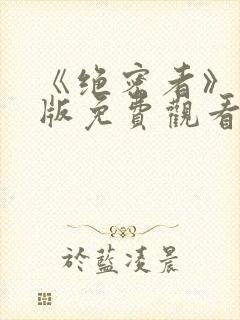 《绝密者》
版免費觀看
於藍凌晨